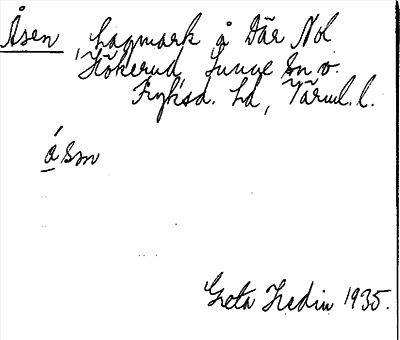 Åsen, hagmark å Där Nol
Hökerud, Lunge sn v.
Fryksd. hd, Värml. l.
åsm
Greta Hedin 1935.